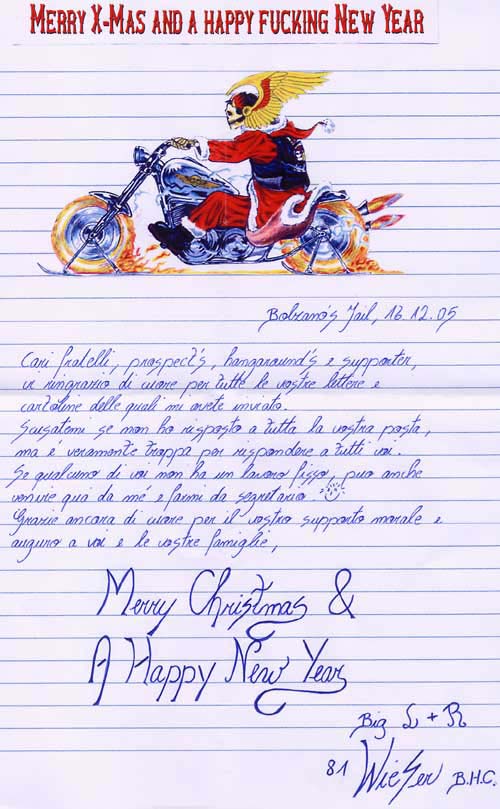 MERRY X-MAS AND A HAPPY FUCKING NEW YEAR
Bolzano's Jail, 16.12.05
Cari fratelli, prospect's, hangaround's e supporter,
vi ringrazio di cuore per tutte le vostre lettere e
cartoline delle quali mi avete inviato.
Scusatemi se non ho risposto a tutta la vostra posta,
ma è veramente troppa per rispondere a tutti voi.
Se qualcuno di voi non ha un lavoro fisso, può anche
venire quà da mé e farmi da segretario
Grazie ancora di cuore per il vostro supporto morale e
auguro a voi e le vostre famiglie,
Merry Christmas &
A Happy New Year
Big L + R
81 Wieser B.H.C.